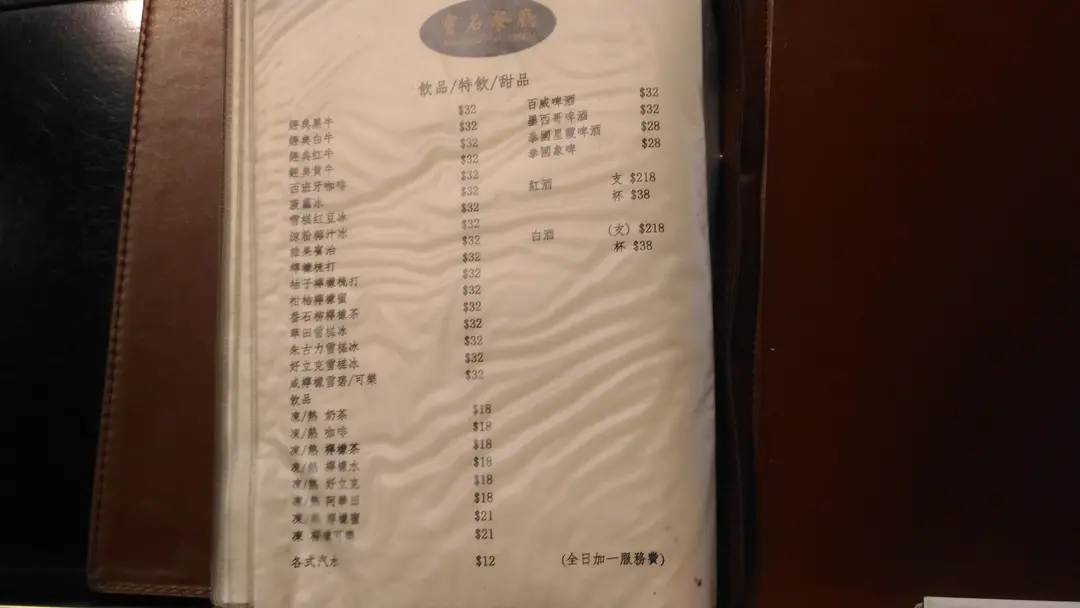 寶石餐廳
飲品/特飲/甜品
經典黑牛 $32
經典白牛 $32
經典紅牛 $32
經典黃牛 $32
西班牙咖啡 $32
菠蘿冰 $32
雪糕紅豆冰 $32
涼粉椰汁冰 $32
雜果賓治 $32
檸檬梳打 $32
柚子檸檬梳打 $32
柑桔檸檬蜜 $32
番石榴檸檬茶 $32
華田雪糕冰 $32
朱古力雪糕冰 $32
好立克雪糕冰 $32
咸檸檬雪碧/可樂 $32
飲品
凍/熱 奶茶 $18
凍/熱 咖啡 $18
凍/熱 檸檬茶 $18
凍/熱 檸檬水 $18
凍/熱 好立克 $18
凍/熱 阿華田 $18
凍/熱 檸檬蜜 $21
凍 檸檬可樂 $21
各式汽水 $12
百威啤酒 $32
墨西哥啤酒 $32
泰國星霞啤酒 $28
泰國象啤 $28
紅酒 支 $218
杯 $38
白酒 (支) $218
杯 $38
(全日加一服務費)